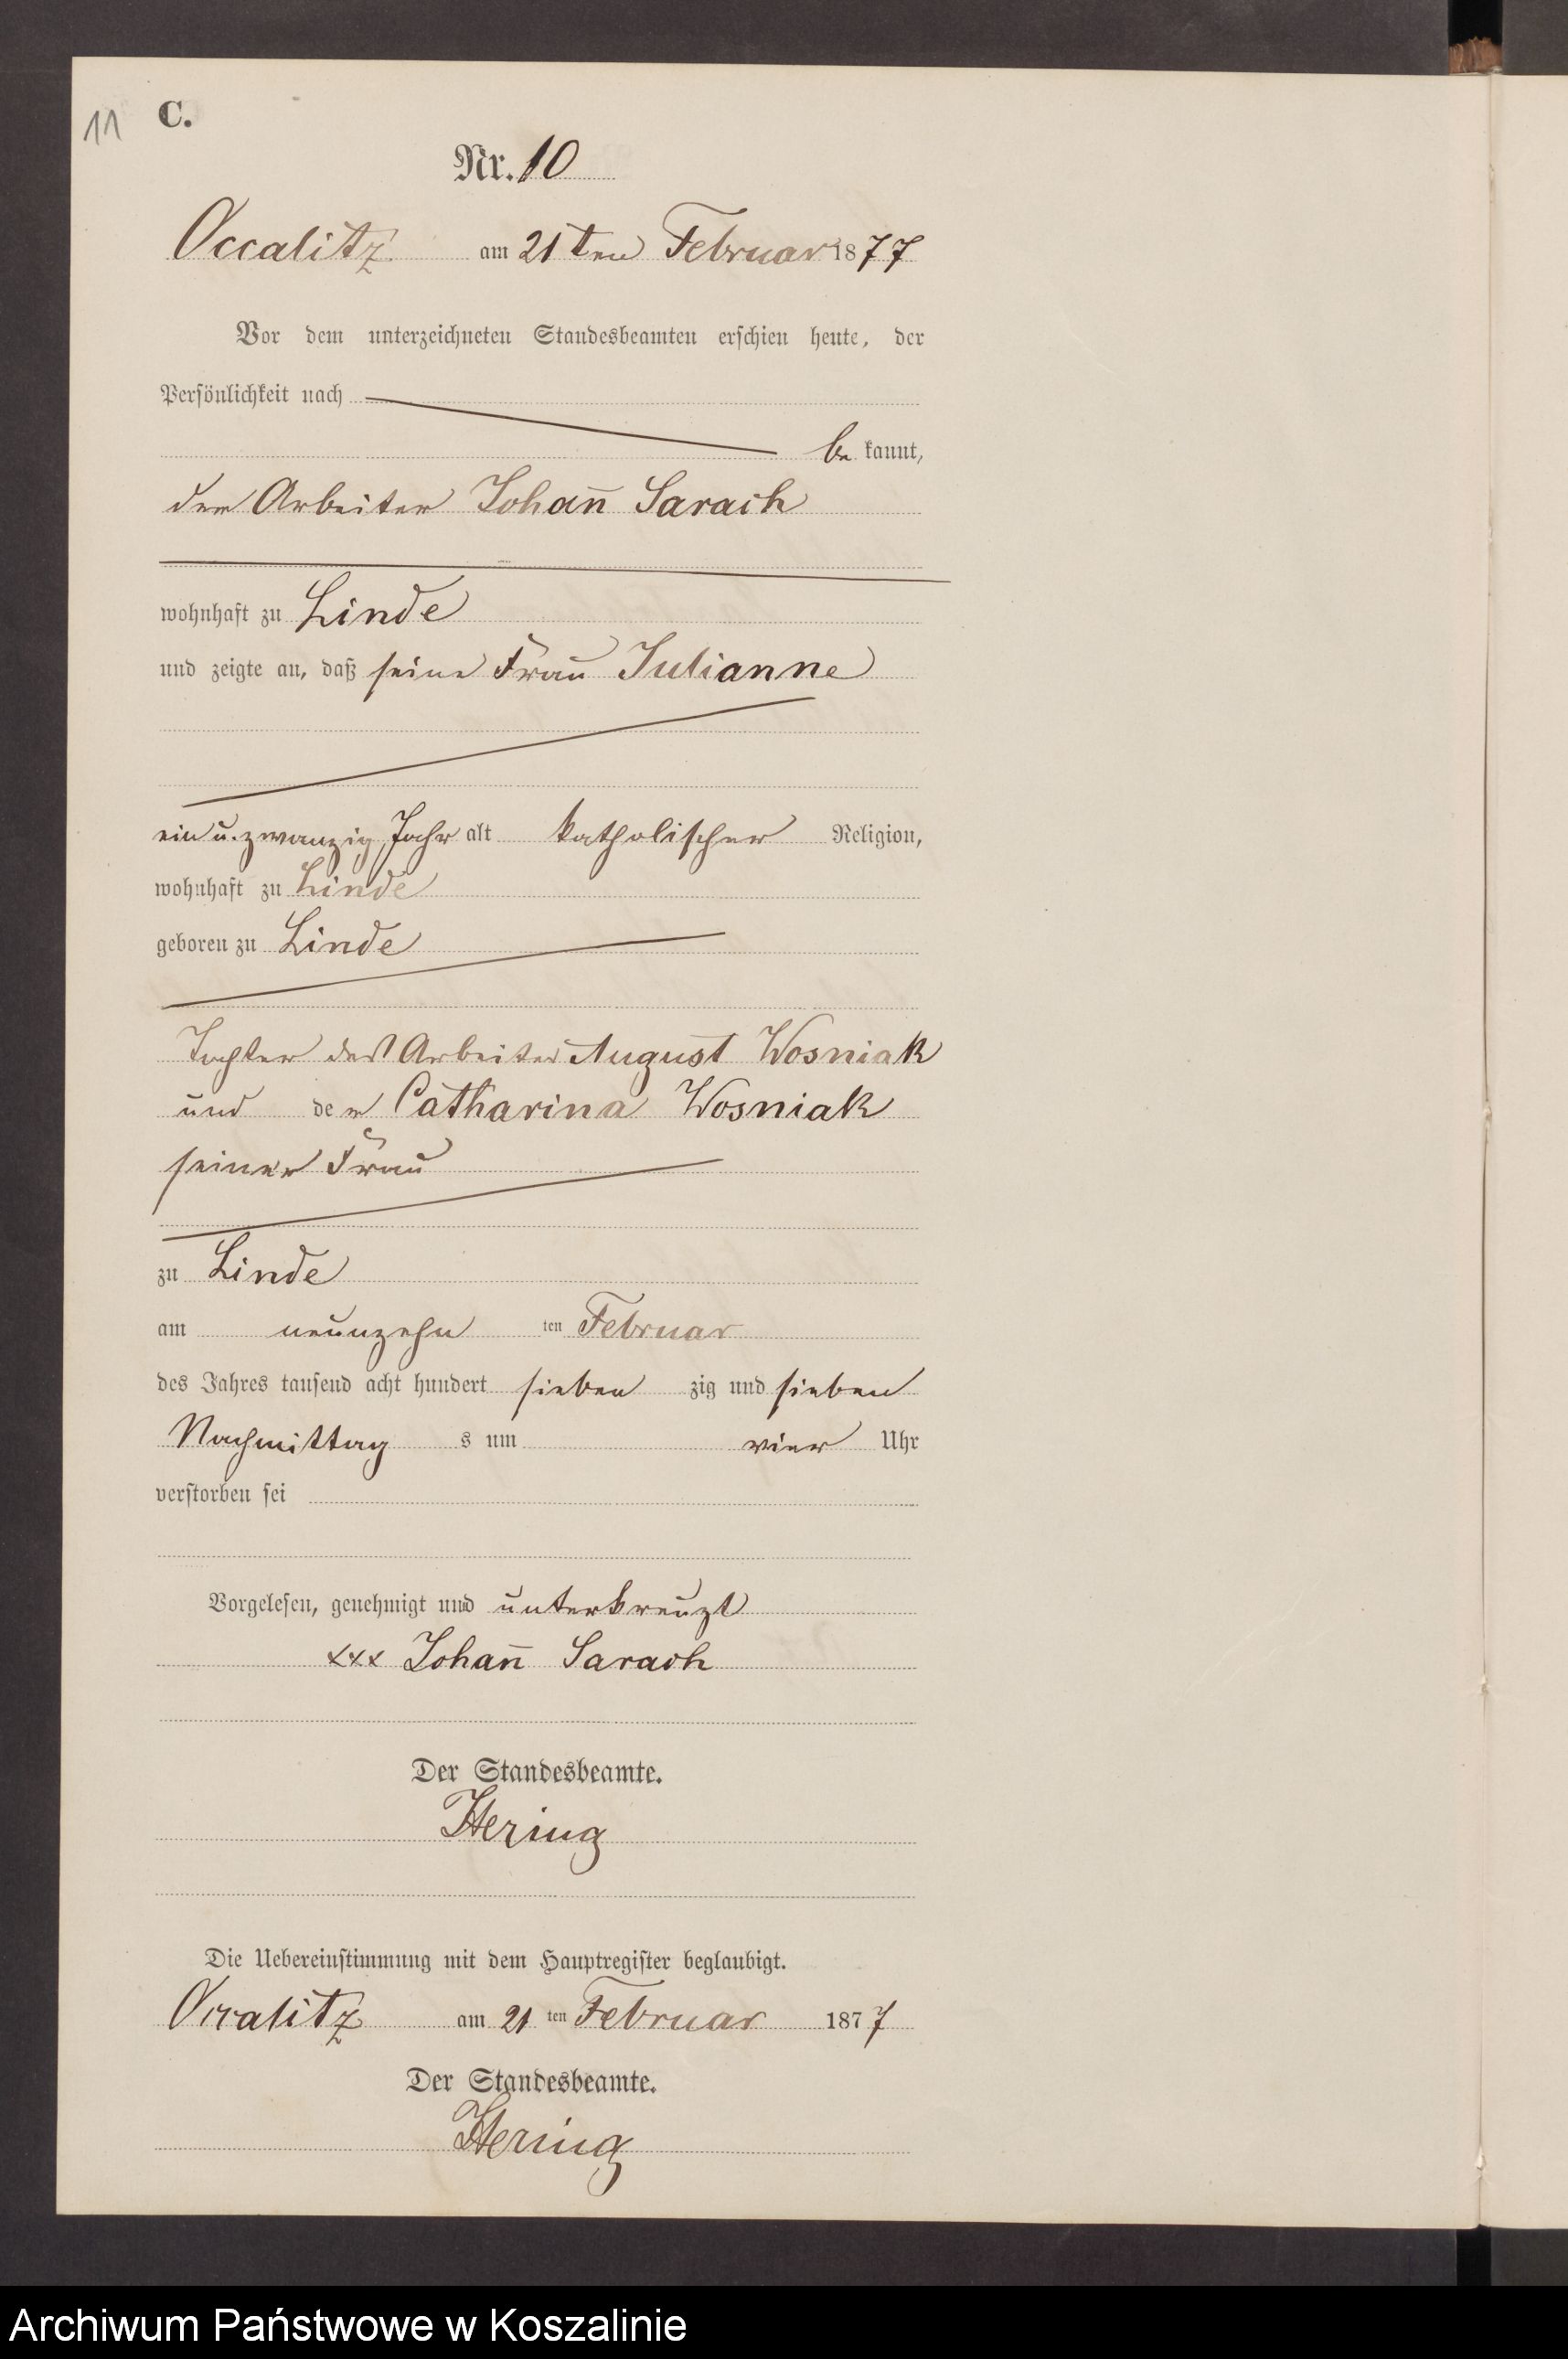 11 C.
Nr. 10
Occalitz am 21ten Februar 1877
Vor dem unterzeichneten Standesbeamten erschien heute, der
Persönlichkeit nach
be kannt,
der Arbeiter Johan̄ Sarach
wohnhaft zu Linde
und zeigte an, daß seine Frau Julianne
ein u. zwanzig Jahr alt katholischer Religion,
wohnhaft zu Linde
geboren zu Linde
Tochter des Arbeiter August Wosniak
und der Catharina Wosniak
seiner Frau
zu Linde
am neunzehn ten Februar
des Jahres tausend acht hundert sieben zig und sieben
Nachmittag s um vier Uhr
verstorben sei
Vorgelesen, genehmigt und unterkreuzt
xxx Johan̄ Sarach
Der Standesbeamte.
Hering
Die Uebereinstimmung mit dem Hauptregister beglaubigt.
Occalitz am 21 ten Februar 1877
Der Standesbeamte.
Hering
Archiwum Państwowe w Koszalinie